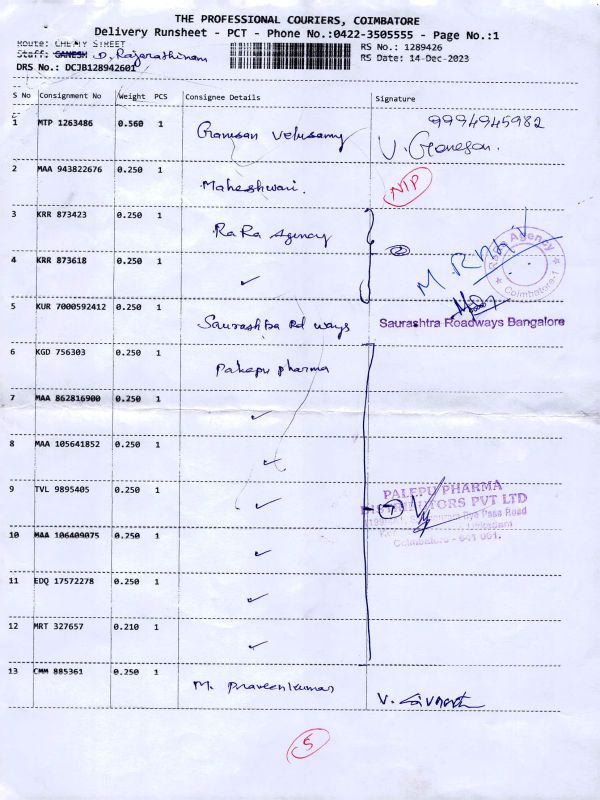 THE PROFESSIONAL COURIERS, COIMBATORE
Delivery Runsheet - PCT - Phone No.:0422-3505555 - Page No.:1
Route: CHETTY STREET
Staff: GANESH D. Rajarathinam
DRS No.: DCJB128942601
RS No.: 1289426
RS Date: 14-Dec-2023
S No Consignment No Weight PCS Consignee Details Signature
1 MTP 1263486 0.560 1 Ganesan Velusamy 9994945982
V. Ganesan.
2 MAA 943822676 0.250 1 Maheshwari. NIP
3 KRR 873423 0.250 1 RaRa Agency
4 KRR 873618 0.250 1 ✓ 2 Agency
Coimbatore-1
5 KUR 7000592412 0.250 1 Saurashtra Rd ways Saurashtra Roadways Bangalore
6 KGD 756303 0.250 1 Palepu pharma
7 MAA 862816900 0.250 1 ✓
8 MAA 105641852 0.250 1 ✓
9 TVL 9895405 0.250 1 ✓ 7
PALEPU PHARMA
DISTRIBUTORS PVT LTD
Bye Pass Road
Ukkadam
Coimbatore - 641 001.
10 MAA 106409075 0.250 1 ✓
11 EDQ 17572278 0.250 1 ✓
12 MRT 327657 0.210 1 ✓
13 CMM 885361 0.250 1 M. Praveenkumar
5